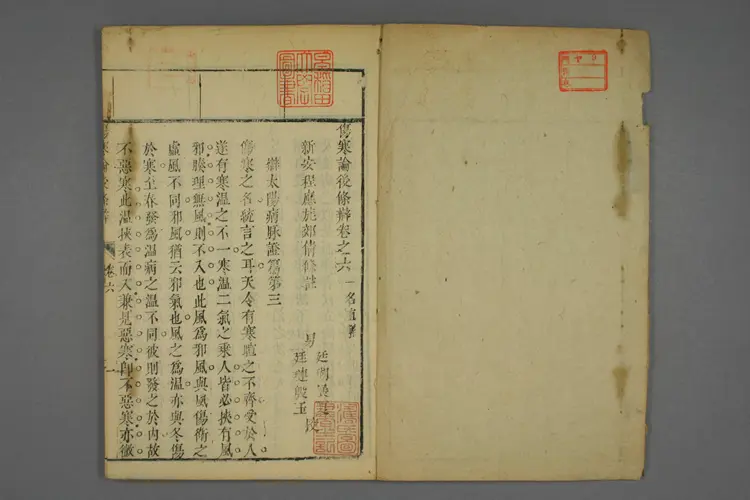 傷寒論後條辨卷之六 一名直解
新安程應旄郊倩條註
男 廷
廷璉殷玉 校
辨太陽病脉證篇第三
傷寒之名統言之耳天令有寒暄之不齊受於人
遂有寒溫之不一寒溫二氣之乘人皆必挾有風
邪腠理無風則不入也此風爲邪風與風傷衛之
虛風不同邪風猶云邪氣也風之爲溫亦與冬傷
於寒至春發爲溫病之溫不同彼則發之於內故
不惡寒此溫挾表而入兼見惡寒即不惡寒亦微
卷六
早稲田大学圖書